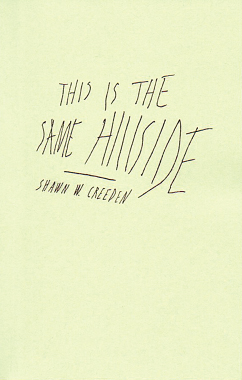 THIS IS THE
SAME HILLSIDE
SHAWN W. CREEDEN